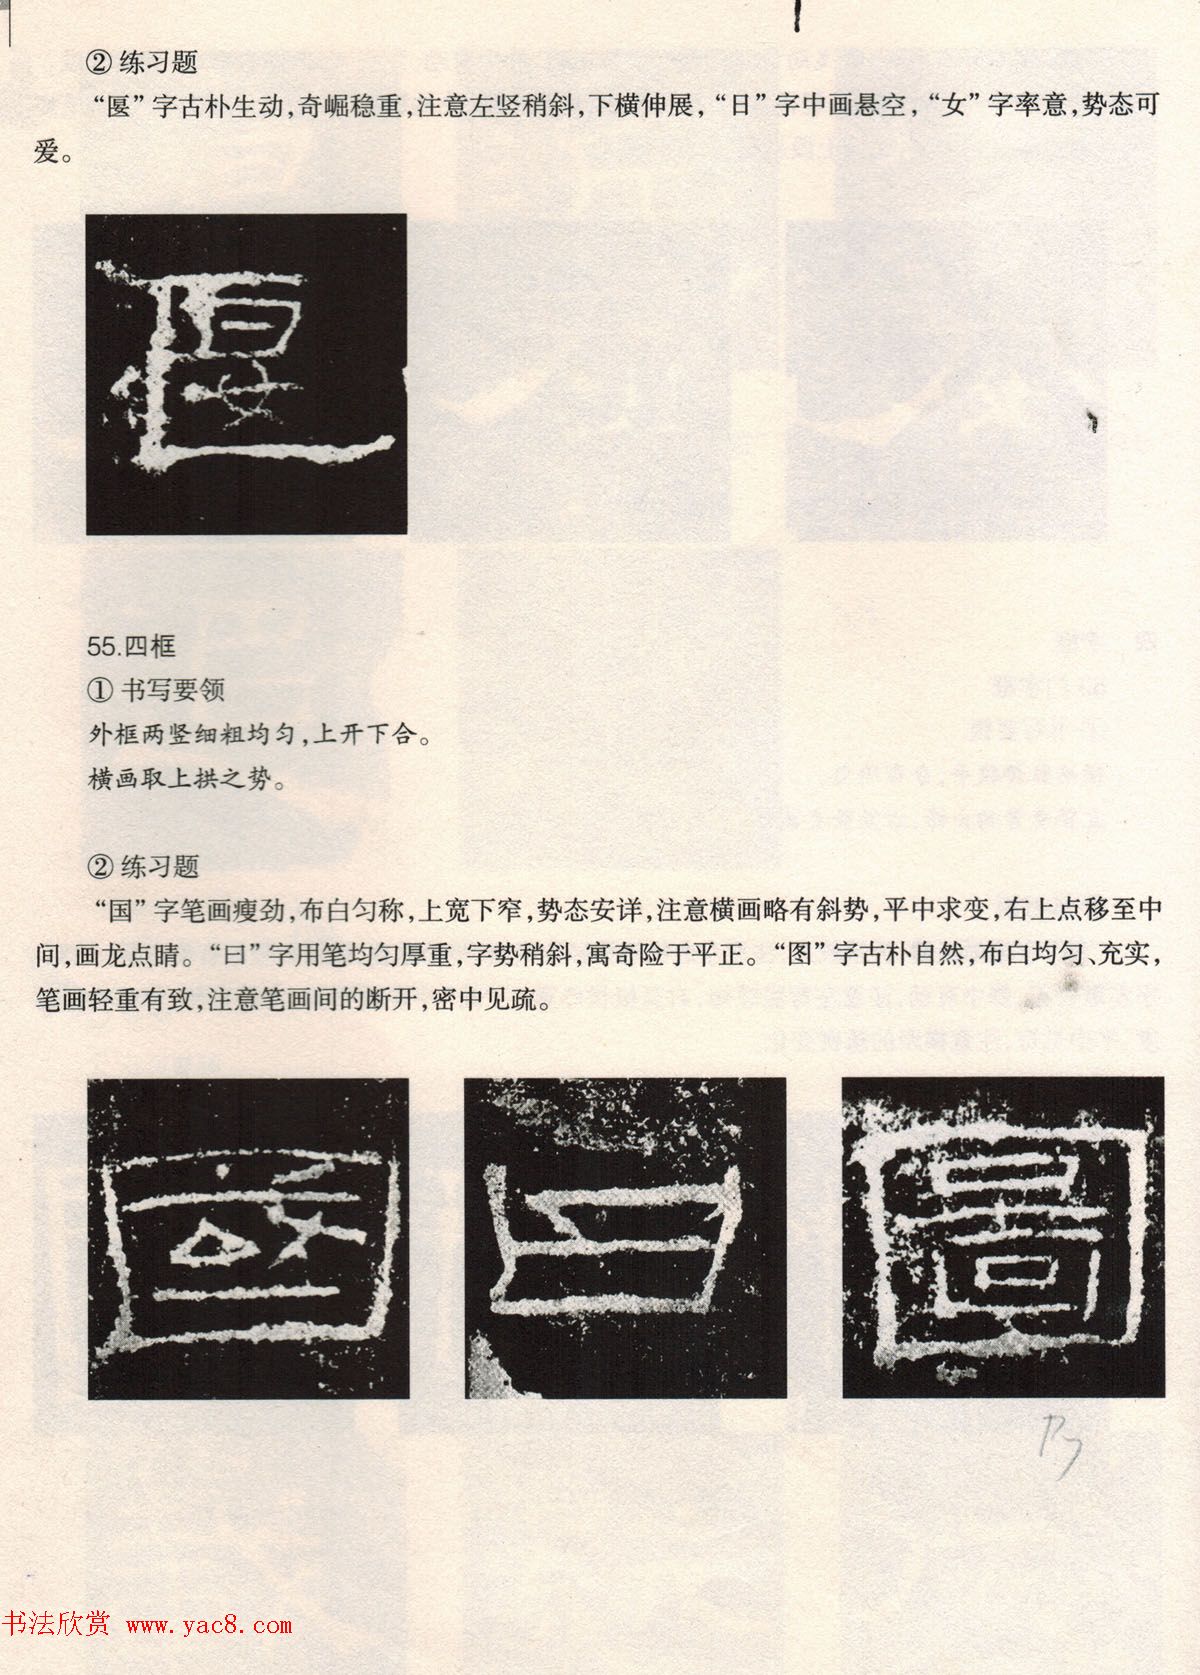 ② 练习题
“匽”字古朴生动，奇崛稳重，注意左竖稍斜，下横伸展，“日”字中画悬空，“女”字率意，势态可
爱。
匽
55.四框
① 书写要领
外框两竖细粗均匀，上开下合。
横画取上拱之势。
② 练习题
“国”字笔画瘦劲，布白匀称，上宽下窄，势态安详，注意横画略有斜势，平中求变，右上点移至中
间，画龙点睛。“曰”字用笔均匀厚重，字势稍斜，寓奇险于平正。“图”字古朴自然，布白均匀、充实，
笔画轻重有致，注意笔画间的断开，密中见疏。
國 曰 圖
书法欣赏 www.yac8.com